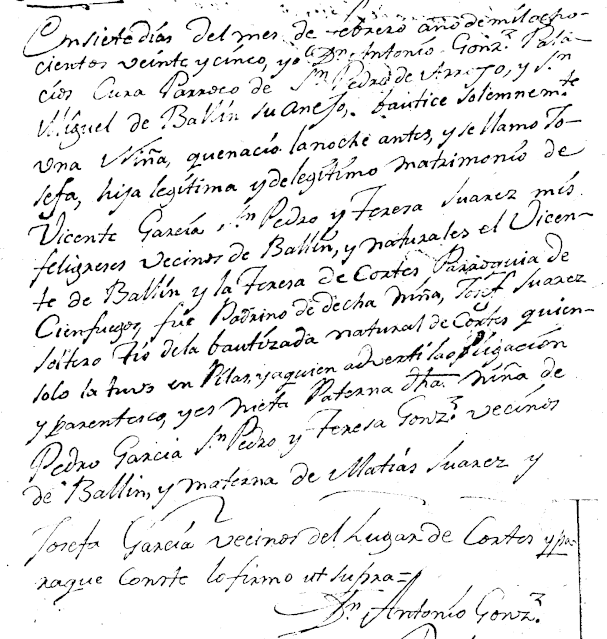 En siete dias del mes de febrero año de mil ocho-
cientos veinte y cinco, yo Dn Antonio Gonz.z Pala-
cios Cura Parroco de Sn Pedro de Arrojo, y Sn
Miguel de Ballin su anejo, bautice solemnem.te
una Niña, que nacio la noche antes, y se llamo Jo-
sefa, hija legitima y de legitimo matrimonio de
Vicente Garcia Sn Pedro y Teresa Suarez mis
feligreses vecinos de Ballin, y naturales el Vicen-
te de Ballin y la Teresa de Cortes Parroquia de
Cienfuegos, fue Padrino de decha Niña, Josef Suarez
soltero tio de la bautizada natural de Cortes quien
solo la tuvo en Pila, y a quien adverti la obligación
y parentesco, y es nieta Paterna dha. Niña de
Pedro Garcia Sn Pedro y Teresa Gonz.z vecinos
de Ballin, y materna de Matias Suarez y
Josefa Garcia vecinos del Lugar de Cortes y pa-
raque conste lo firmo ut supra=
Dn Antonio Gonz.z